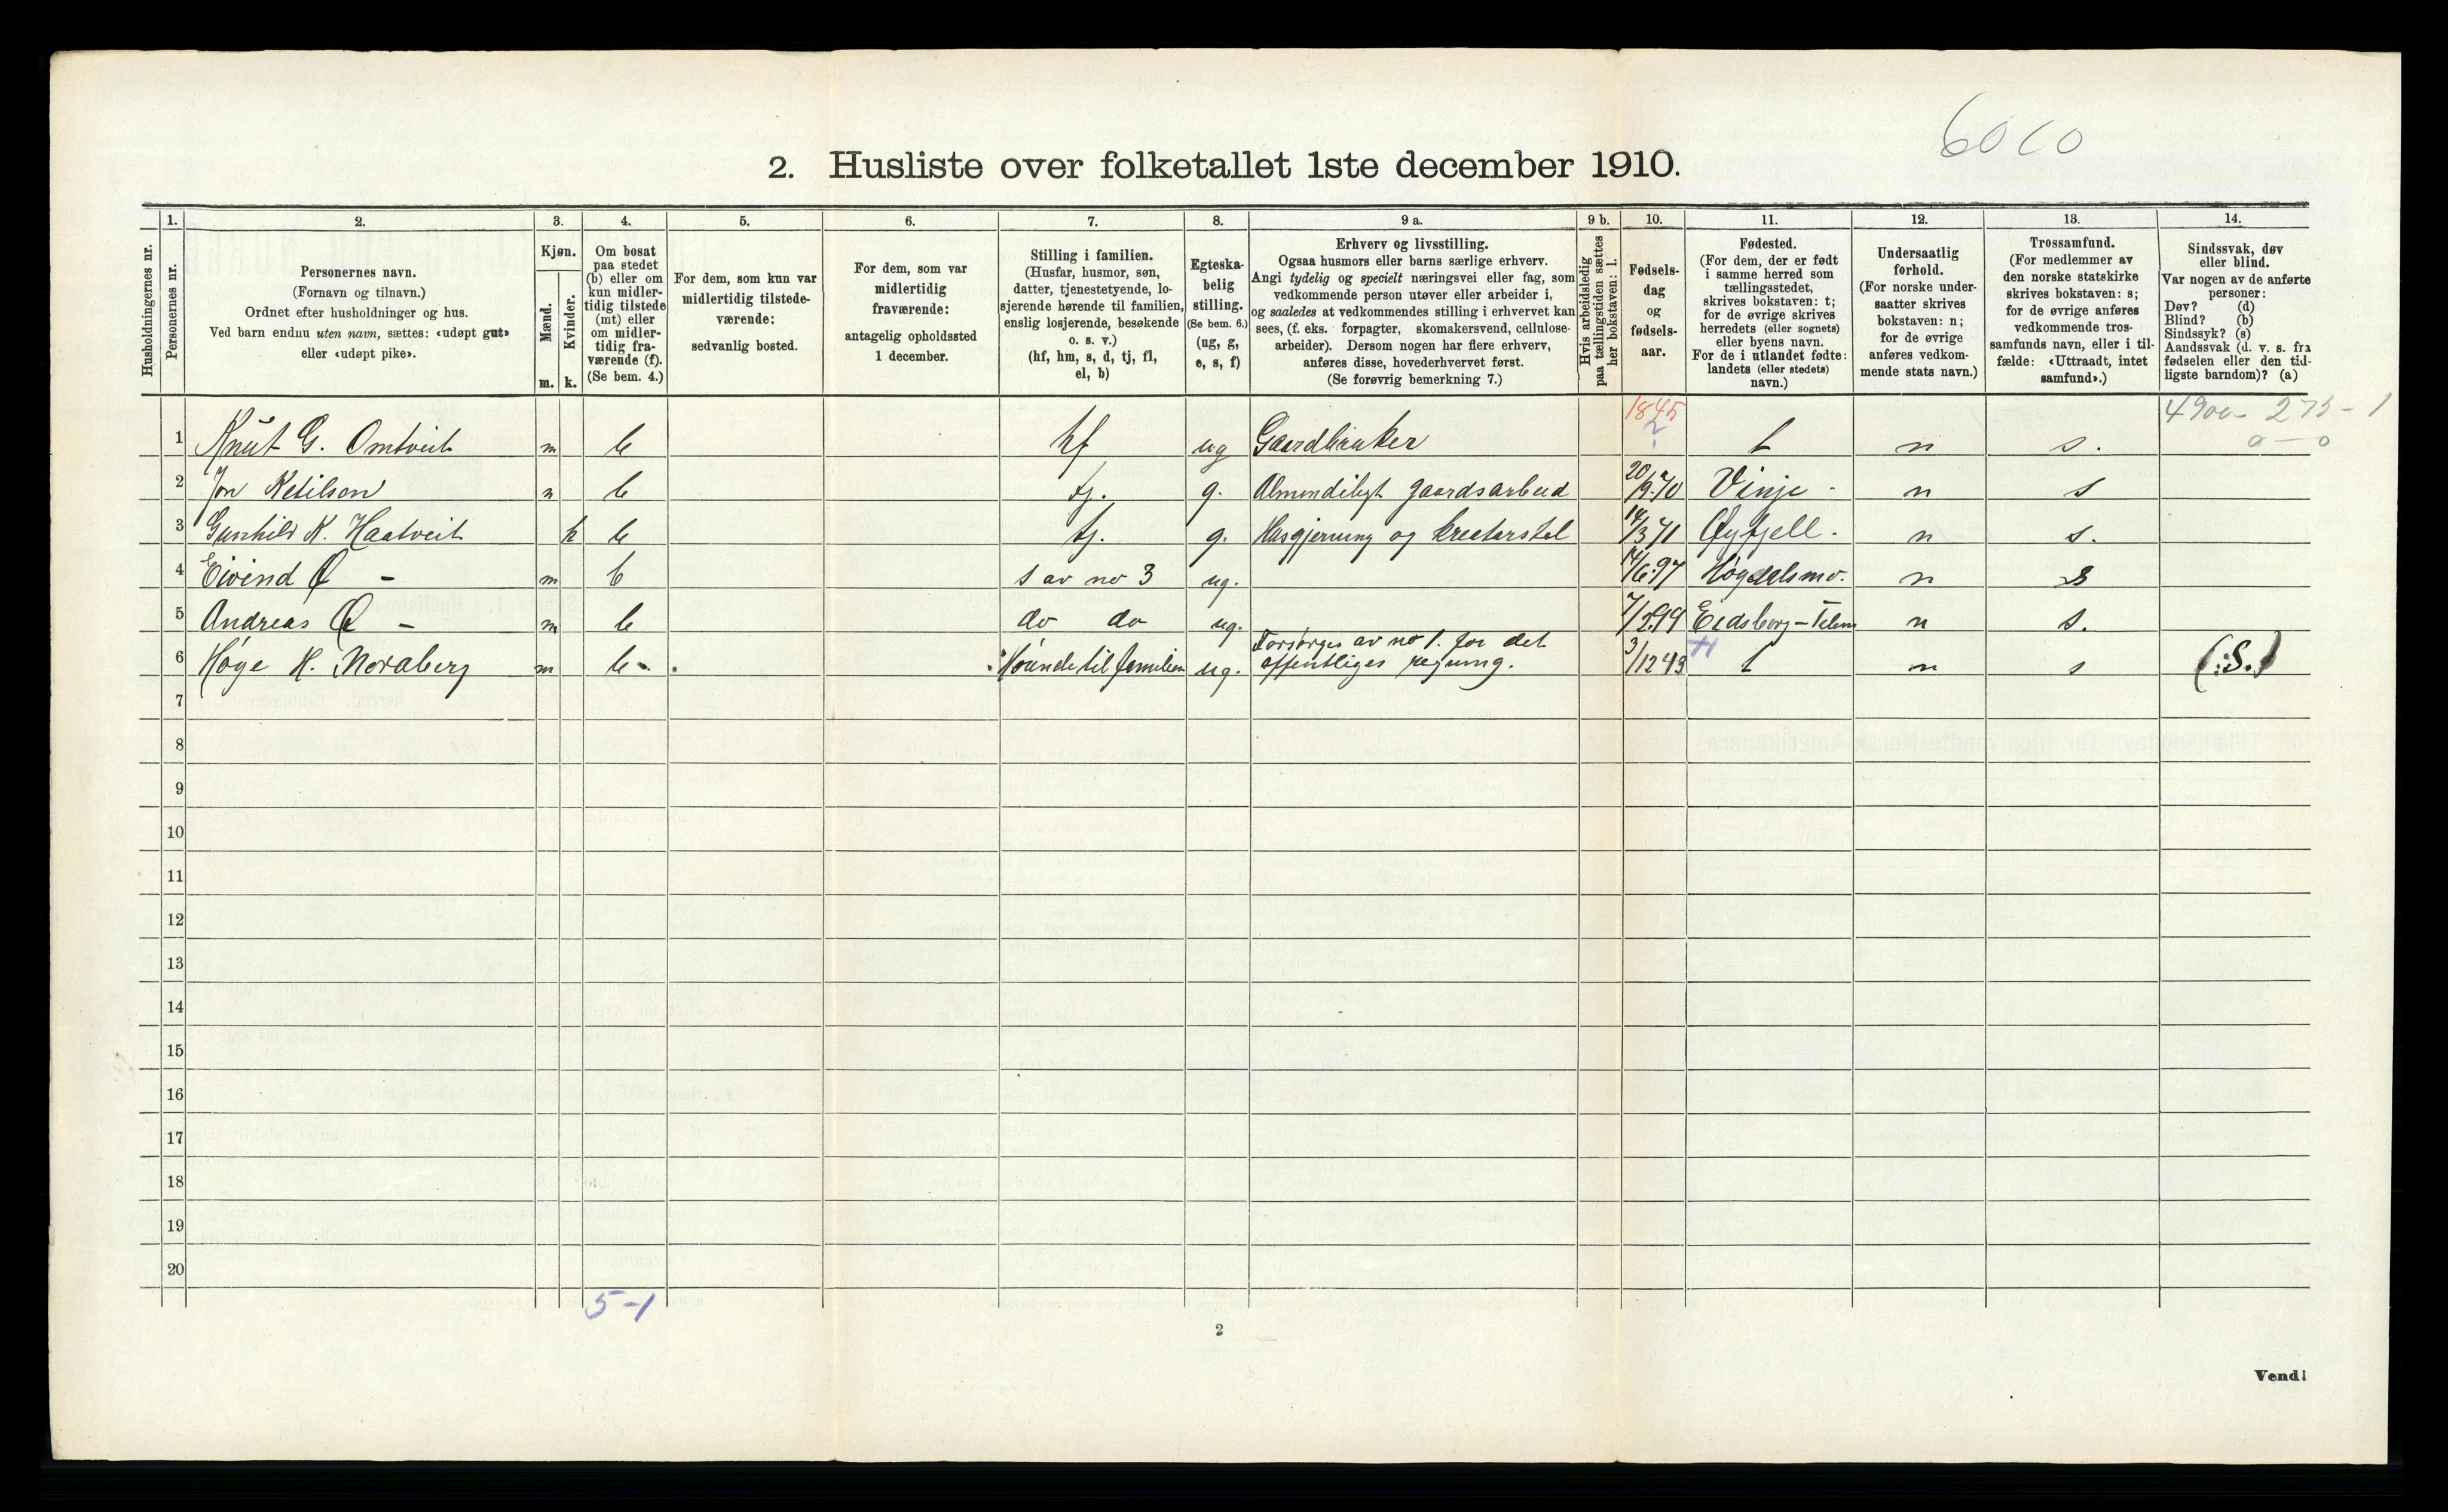 6010
2. Husliste over folketallet 1ste december 1910.
Husholdningernes nr.
1. Personernes nr.
2. Personernes navn. (Fornavn og tilnavn.) Ordnet efter husholdninger og hus. Ved barn endnu uten navn, sættes: «udøpt gut» eller «udøpt pike».
3. Kjøn. Mænd. m. Kvinder. k.
4. Om bosat paa stedet (b) eller om kun midlertidig tilstede (mt) eller om midlertidig fraværende (f). (Se bem. 4.)
5. For dem, som kun var midlertidig tilstedeværende: sedvanlig bosted.
6. For dem, som var midlertidig fraværende: antagelig opholdssted 1 december.
7. Stilling i familien. (Husfar, husmor, søn, datter, tjenestetyende, losjerende hørende til familien, enslig losjerende, besøkende o. s. v.) (hf, hm, s, d, tj, fl, el, b)
8. Egteskabelig stilling. (Se bem. 6.) (ug, g, e, s, f)
9 a. Erhverv og livsstilling. Ogsaa husmors eller barns særlige erhverv. Angi tydelig og specielt næringsvei eller fag, som vedkommende person utøver eller arbeider i, og saaledes at vedkommendes stilling i erhvervet kan sees, (f. eks. forpagter, skomakersvend, cellulosearbeider). Dersom nogen har flere erhverv, anføres disse, hovederhvervet først. (Se forøvrig bemerkning 7.)
9 b. Hvis arbeidsledig paa tællingstiden sættes her bokstaven: l.
10. Fødselsdag og fødselsaar.
11. Fødested. (For dem, der er født i samme herred som tællingsstedet, skrives bokstaven: t; for de øvrige skrives herredets (eller sognets) eller byens navn. For de i utlandet fødte: landets (eller stedets) navn.)
12. Undersaatlig forhold. (For norske undersaatter skrives bokstaven: n; for de øvrige anføres vedkommende stats navn.)
13. Trossamfund. (For medlemmer av den norske statskirke skrives bokstaven: s; for de øvrige anføres vedkommende trossamfunds navn, eller i tilfælde: «Uttraadt, intet samfund».)
14. Sindssvak, døv eller blind. Var nogen av de anførte personer: Døv? (d) Blind? (b) Sindssyk? (s) Aandssvak (d. v. s. fra fødselen eller den tidligste barndom)? (a)
1845 275 - 1
0 — 0
1 Knut G. Omtveit m b hf ug Gaardbruker t n s.
2 Jon Ketilson m b tj. g. Almindeligt gaardsarbeid 20/9 70 Vinje n s
3 Gunhild K. Haatveit k b tj. g. Husgjerning og kreaturstel 14/3 71 Øyfjell n s.
4 Eivind Ø — m b s av no 3 ug. 14/6 97 Høgdalsmo. n s
5 Andreas Ø — m b do do ug. 7/2 99 Eidsborg - Telem n s.
6 Høge H. Nordberg m b til familien ug. Forsørges av no 1. for det offentliges regning. 3/12 43 t n s (:S.)
7
8
9
10
11
12
13
14
15
16
17
18
19
20
5-1
2
Vend!